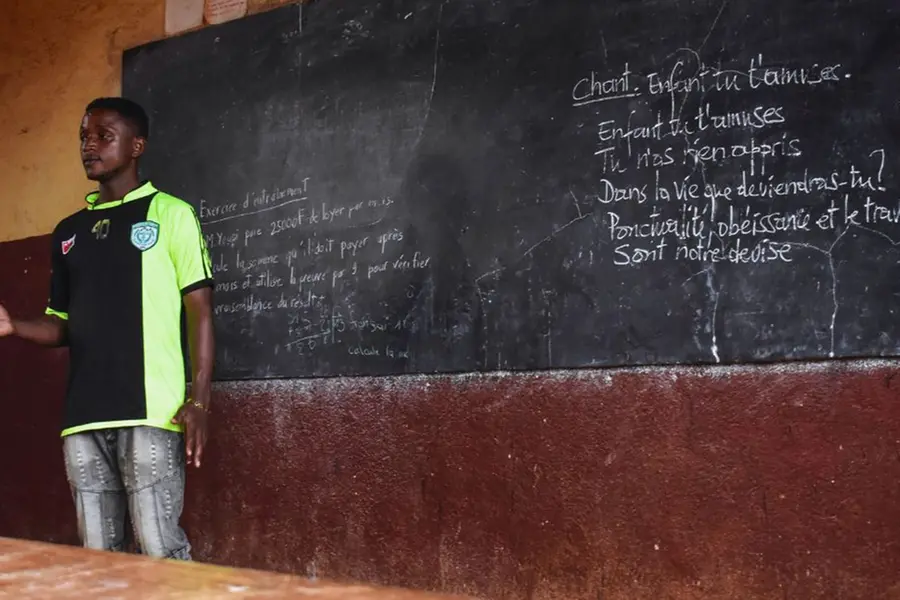 Exercice d'entraînement
M. Yeugi paie 25000F de loyer par mois.
la somme qu'il doit payer après
mois et utilise la preuve par 9 pour vérifier
vraisemblance du résultat
Calcule la
Chant. Enfant tu t'amuses.
Enfant tu t'amuses
Tu n'as rien appris
Dans la vie que deviendras-tu?
Ponctualité, obéissance et le trav
Sont notre devise
40